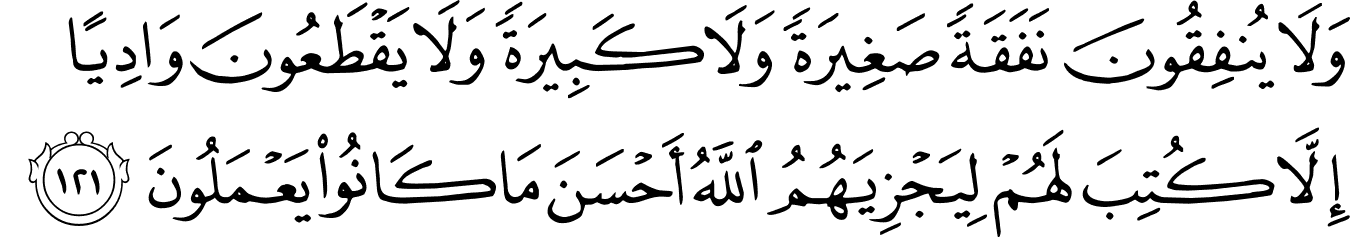 وَلَا يُنفِقُونَ نَفَقَةً صَغِيرَةً وَلَا كَبِيرَةً وَلَا يَقْطَعُونَ وَادِيًا
إِلَّا كُتِبَ لَهُمْ لِيَجْزِيَهُمُ ٱللَّهُ أَحْسَنَ مَا كَانُوا۟ يَعْمَلُونَ ١٢١